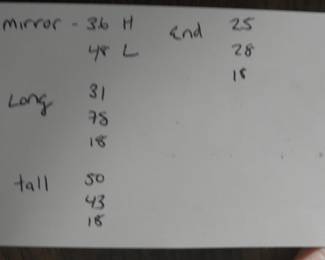 Mirror - 36 H
48 L
Long 31
75
18
tall 50
43
18
End 25
28
18